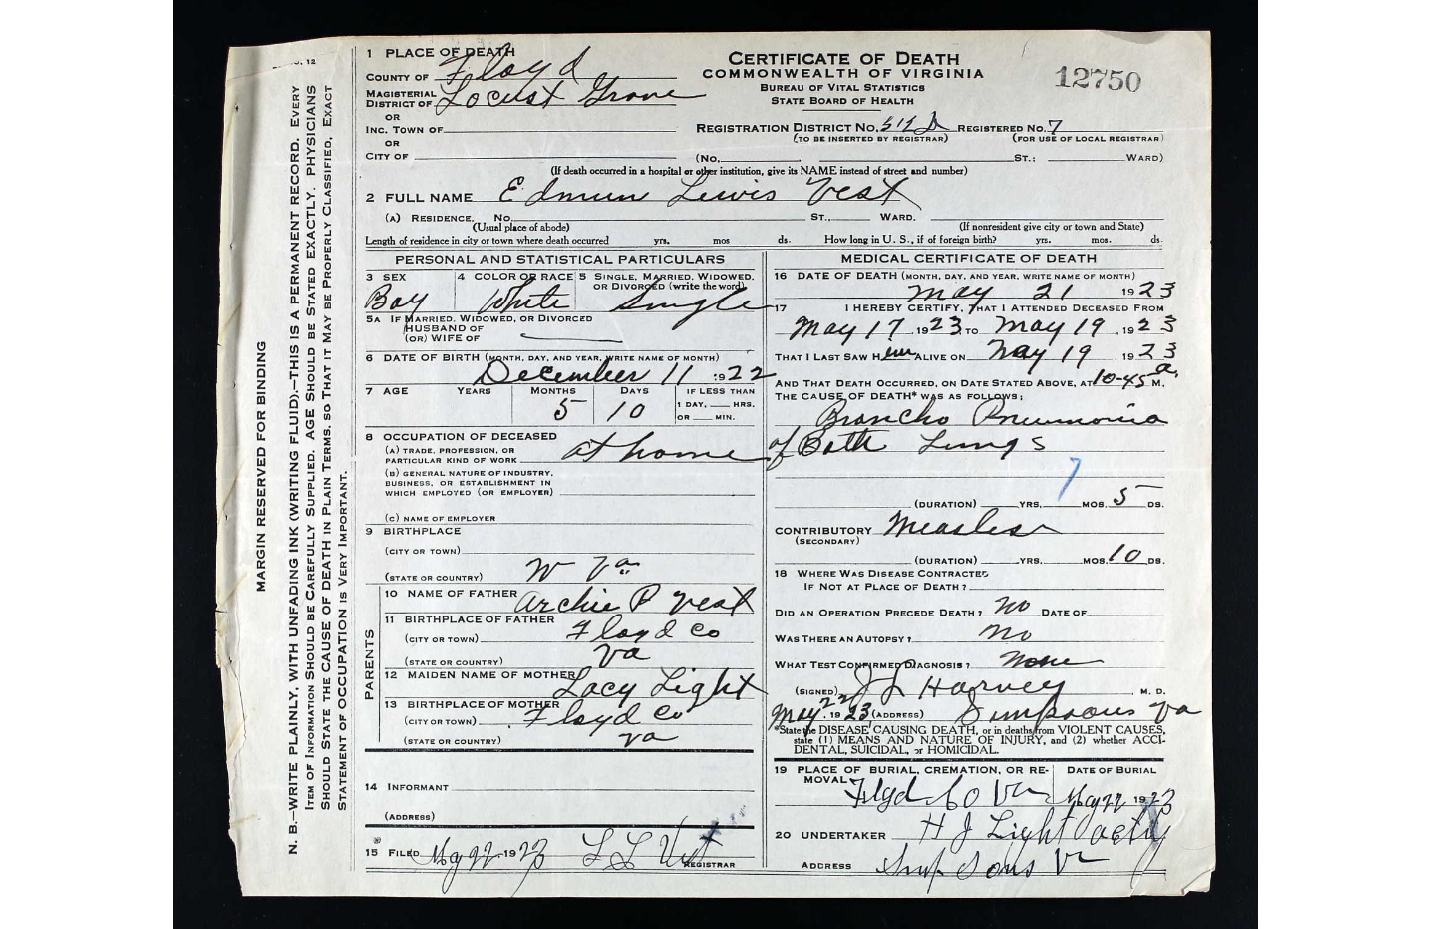 1 PLACE OF DEATH
COUNTY OF Floyd
MAGISTERIAL DISTRICT OF Locust Grove
OR
INC. TOWN OF
OR
CITY OF
CERTIFICATE OF DEATH
COMMONWEALTH OF VIRGINIA
BUREAU OF VITAL STATISTICS
STATE BOARD OF HEALTH
12750
REGISTRATION DISTRICT No. 312D REGISTERED No. 7
(TO BE INSERTED BY REGISTRAR) (FOR USE OF LOCAL REGISTRAR)
(No. ST.; WARD)
(If death occurred in a hospital or other institution, give its NAME instead of street and number)
2 FULL NAME Edmun Lewis Vest
(A) RESIDENCE. No. ST., WARD.
(Usual place of abode) (If nonresident give city or town and State)
Length of residence in city or town where death occurred yrs. mos ds. How long in U. S., if of foreign birth? yrs. mos. ds.
PERSONAL AND STATISTICAL PARTICULARS
3 SEX 4 COLOR OR RACE 5 SINGLE, MARRIED, WIDOWED, OR DIVORCED (write the word)
Boy White Single
5A IF MARRIED, WIDOWED, OR DIVORCED
HUSBAND OF
(OR) WIFE OF
6 DATE OF BIRTH (MONTH, DAY, AND YEAR, WRITE NAME OF MONTH)
December 11 1922
7 AGE YEARS MONTHS DAYS IF LESS THAN
5 10 1 DAY, HRS.
OR MIN.
8 OCCUPATION OF DECEASED
(A) TRADE, PROFESSION, OR
PARTICULAR KIND OF WORK at home
(B) GENERAL NATURE OF INDUSTRY,
BUSINESS, OR ESTABLISHMENT IN
WHICH EMPLOYED (OR EMPLOYER)
(C) NAME OF EMPLOYER
9 BIRTHPLACE
(CITY OR TOWN)
(STATE OR COUNTRY) W Va
PARENTS
10 NAME OF FATHER Archie P Vest
11 BIRTHPLACE OF FATHER
(CITY OR TOWN) Floyd Co
(STATE OR COUNTRY) Va
12 MAIDEN NAME OF MOTHER Lacy Light
13 BIRTHPLACE OF MOTHER
(CITY OR TOWN) Floyd Co
(STATE OR COUNTRY) Va
14 INFORMANT
(ADDRESS)
15 FILED May 22 1923 REGISTRAR
MEDICAL CERTIFICATE OF DEATH
16 DATE OF DEATH (MONTH, DAY, AND YEAR, WRITE NAME OF MONTH)
May 21 1923
17 I HEREBY CERTIFY, THAT I ATTENDED DECEASED FROM
May 17, 1923, TO May 19, 1923
THAT I LAST SAW Him ALIVE ON May 19 1923
AND THAT DEATH OCCURRED, ON DATE STATED ABOVE, AT 10-45 a. M.
THE CAUSE OF DEATH* WAS AS FOLLOWS:
Broncho Pneumonia
of Both Lungs
7
(DURATION) YRS. MOS. 5 DS.
CONTRIBUTORY Measles
(SECONDARY)
(DURATION) YRS. MOS. 10 DS.
18 WHERE WAS DISEASE CONTRACTED
IF NOT AT PLACE OF DEATH?
DID AN OPERATION PRECEDE DEATH? No DATE OF
WAS THERE AN AUTOPSY? No
WHAT TEST CONFIRMED DIAGNOSIS? None
(SIGNED) J L Harvey M. D.
May 22, 1923 (ADDRESS) Simpsons Va
*State the DISEASE CAUSING DEATH, or in deaths from VIOLENT CAUSES,
state (1) MEANS AND NATURE OF INJURY, and (2) whether ACCI-
DENTAL, SUICIDAL, or HOMICIDAL.
19 PLACE OF BURIAL, CREMATION, OR RE-
MOVAL DATE OF BURIAL
Floyd Co Va May 22 1923
20 UNDERTAKER H J Light
ADDRESS Simpsons Va
MARGIN RESERVED FOR BINDING
N. B.—WRITE PLAINLY, WITH UNFADING INK (WRITING FLUID).—THIS IS A PERMANENT RECORD. EVERY
ITEM OF INFORMATION SHOULD BE CAREFULLY SUPPLIED. AGE SHOULD BE STATED EXACTLY. PHYSICIANS
SHOULD STATE THE CAUSE OF DEATH IN PLAIN TERMS, SO THAT IT MAY BE PROPERLY CLASSIFIED. EXACT
STATEMENT OF OCCUPATION IS VERY IMPORTANT.